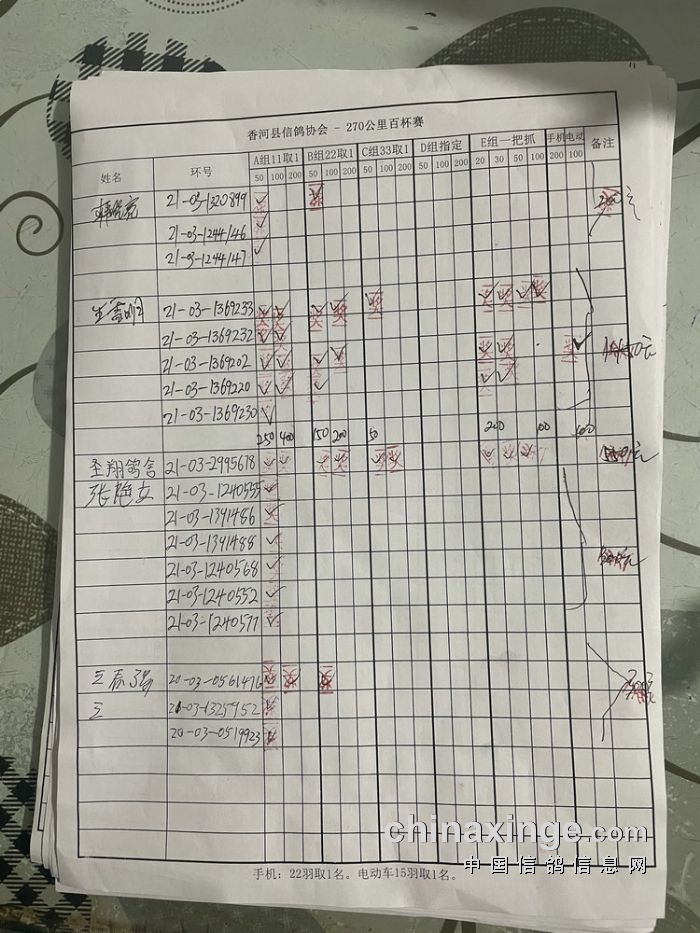 香河县信鸽协会 - 270公里百杯赛
姓名 环号 A组11取1 B组22取1 C组33取1 D组指定 E组一把抓 手机 电动 备注
50 100 200 50 100 200 50 100 200 50 100 200 20 30 50 100 200 100
21-03-1320899
21-03-1244146
21-03-1244147
21-03-1369233
21-03-1369232
21-03-1369202
21-03-1369220
21-03-1369230
250 400 150 200 50 200 100
圣翔鸽舍 21-03-2995618
张艳立 21-03-1240555
21-03-1391486
21-03-1391488
21-03-1240568
21-03-1240552
21-03-1240577
20-03-0561476
20-03-0519923
手机：22羽取1名。电动车15羽取1名。
chinaxinge.com
中国信鸽信息网